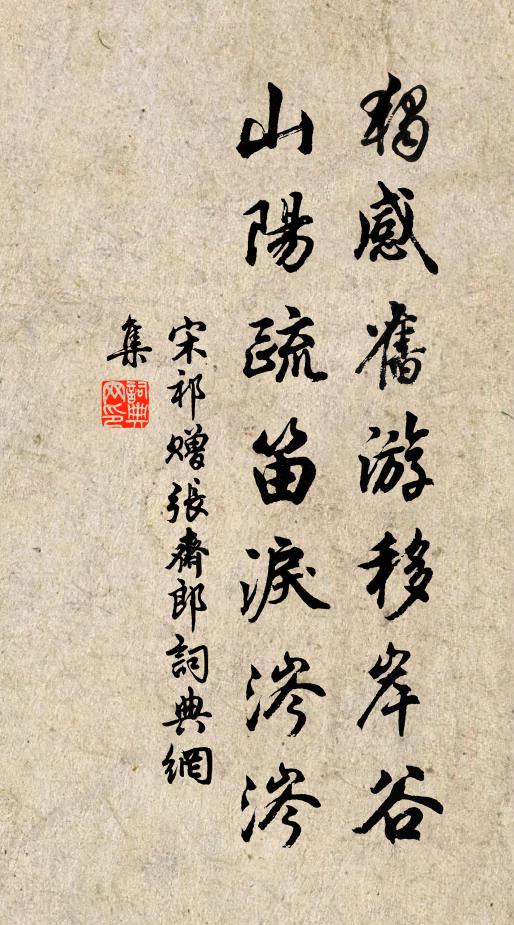 獨感舊游移岸谷
山陽疏笛淚涔涔
宋祁贈張齋郎詞典網
集
詞典
网印